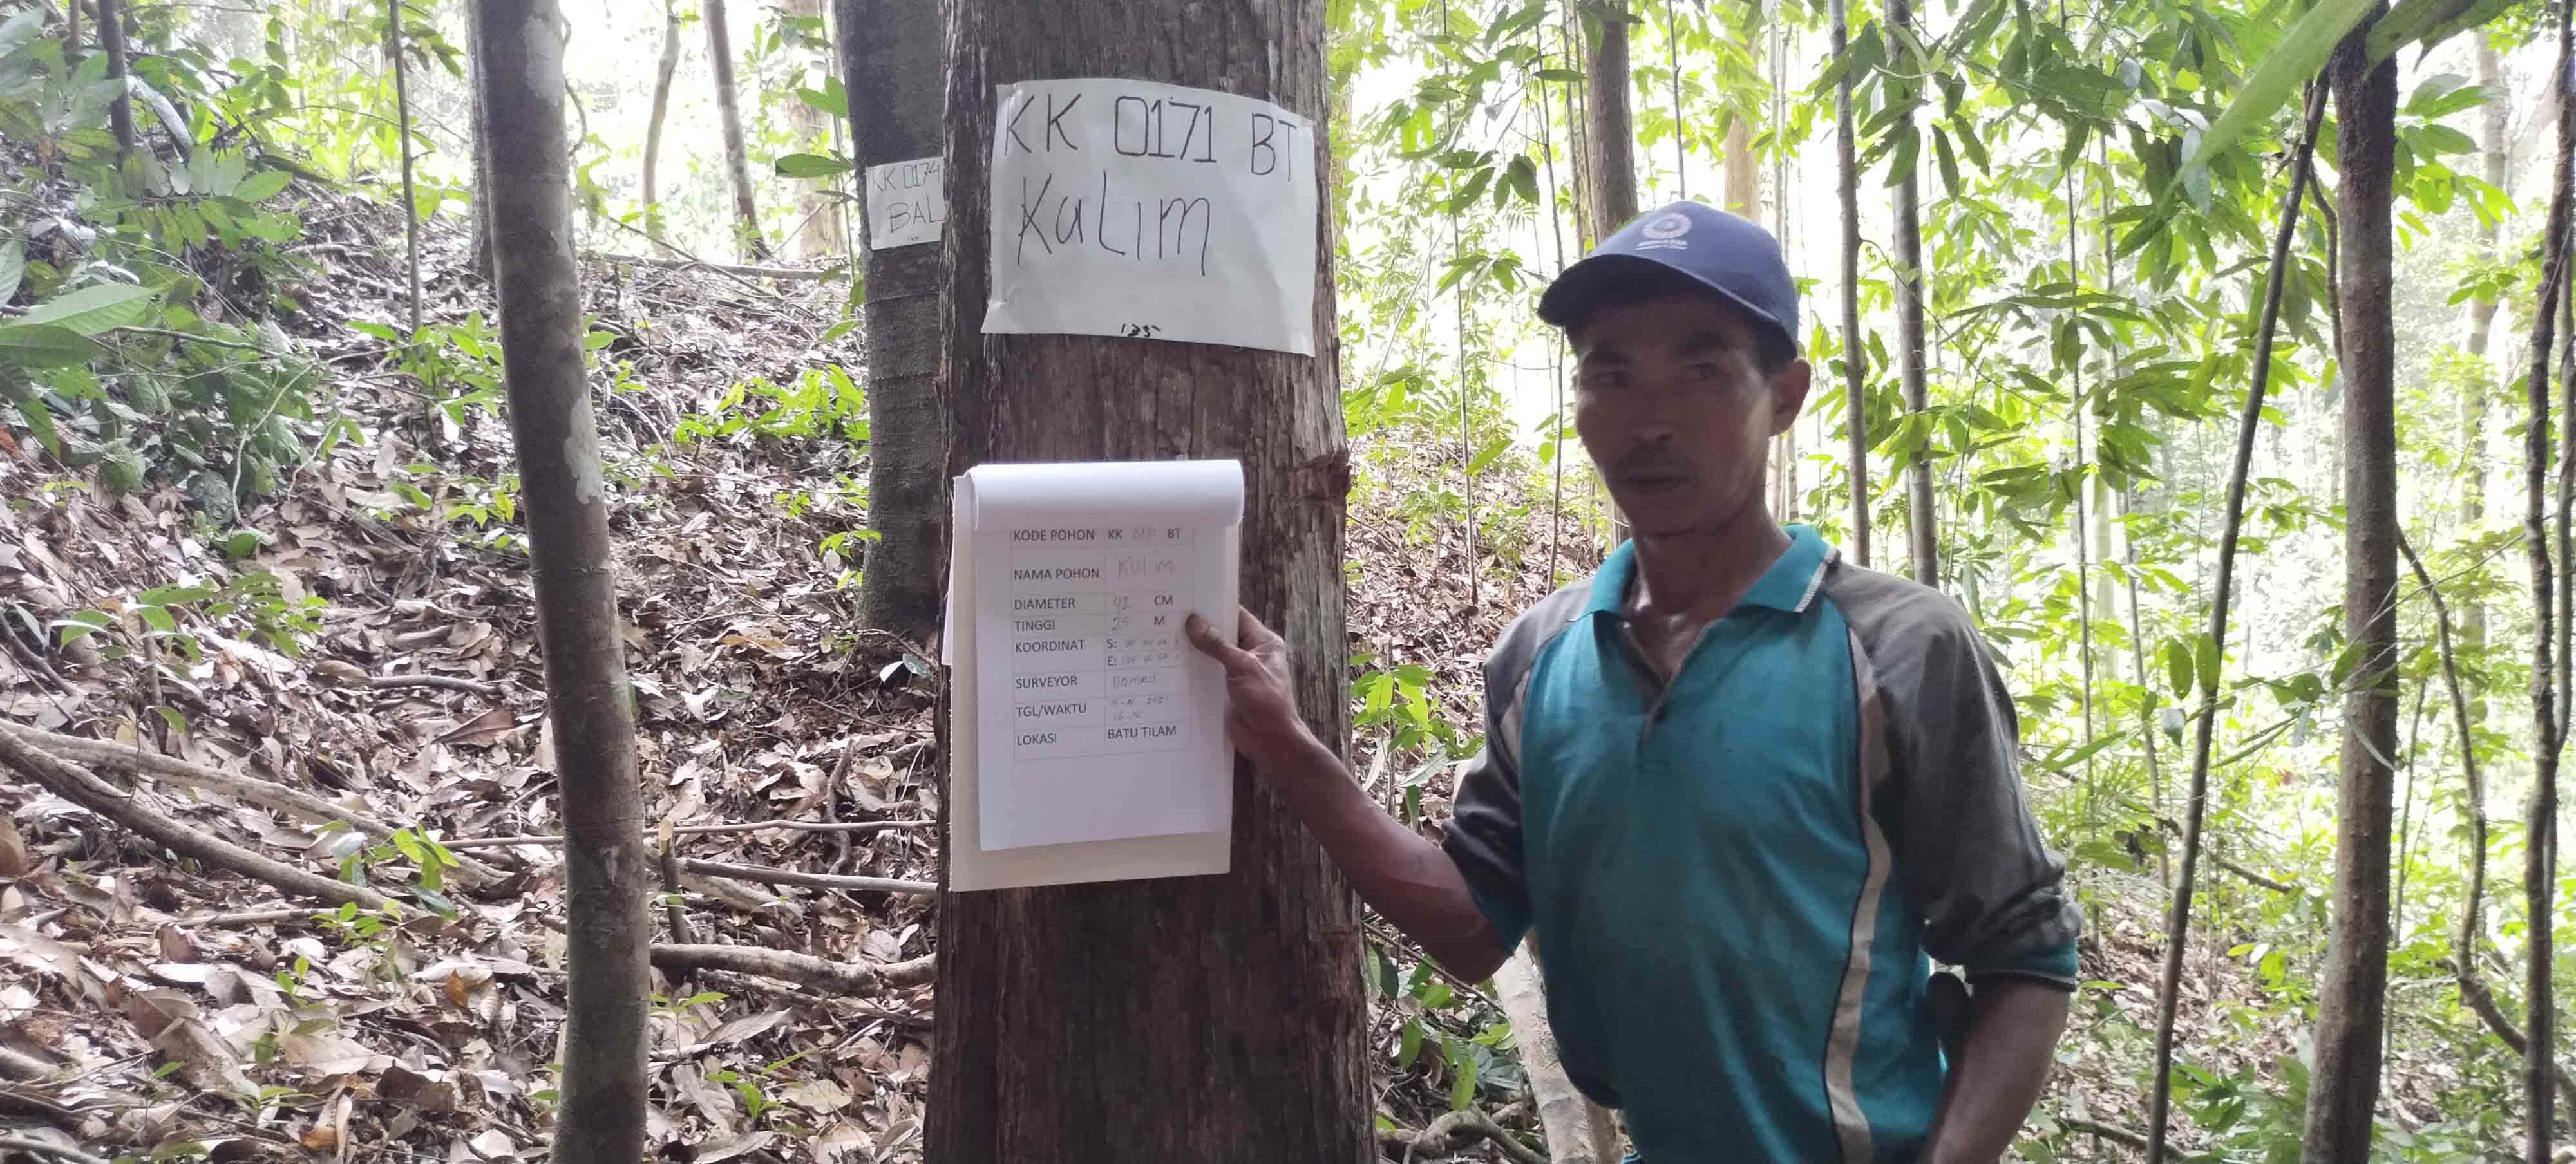 KK 0171 BT
KuLIM
135
KK 0174
BAL
KODE POHON KK 0171 BT
NAMA POHON KuLim
DIAMETER 42 CM
TINGGI 25 M
KOORDINAT S: 00
E:
SURVEYOR
TGL/WAKTU
LOKASI BATU TILAM